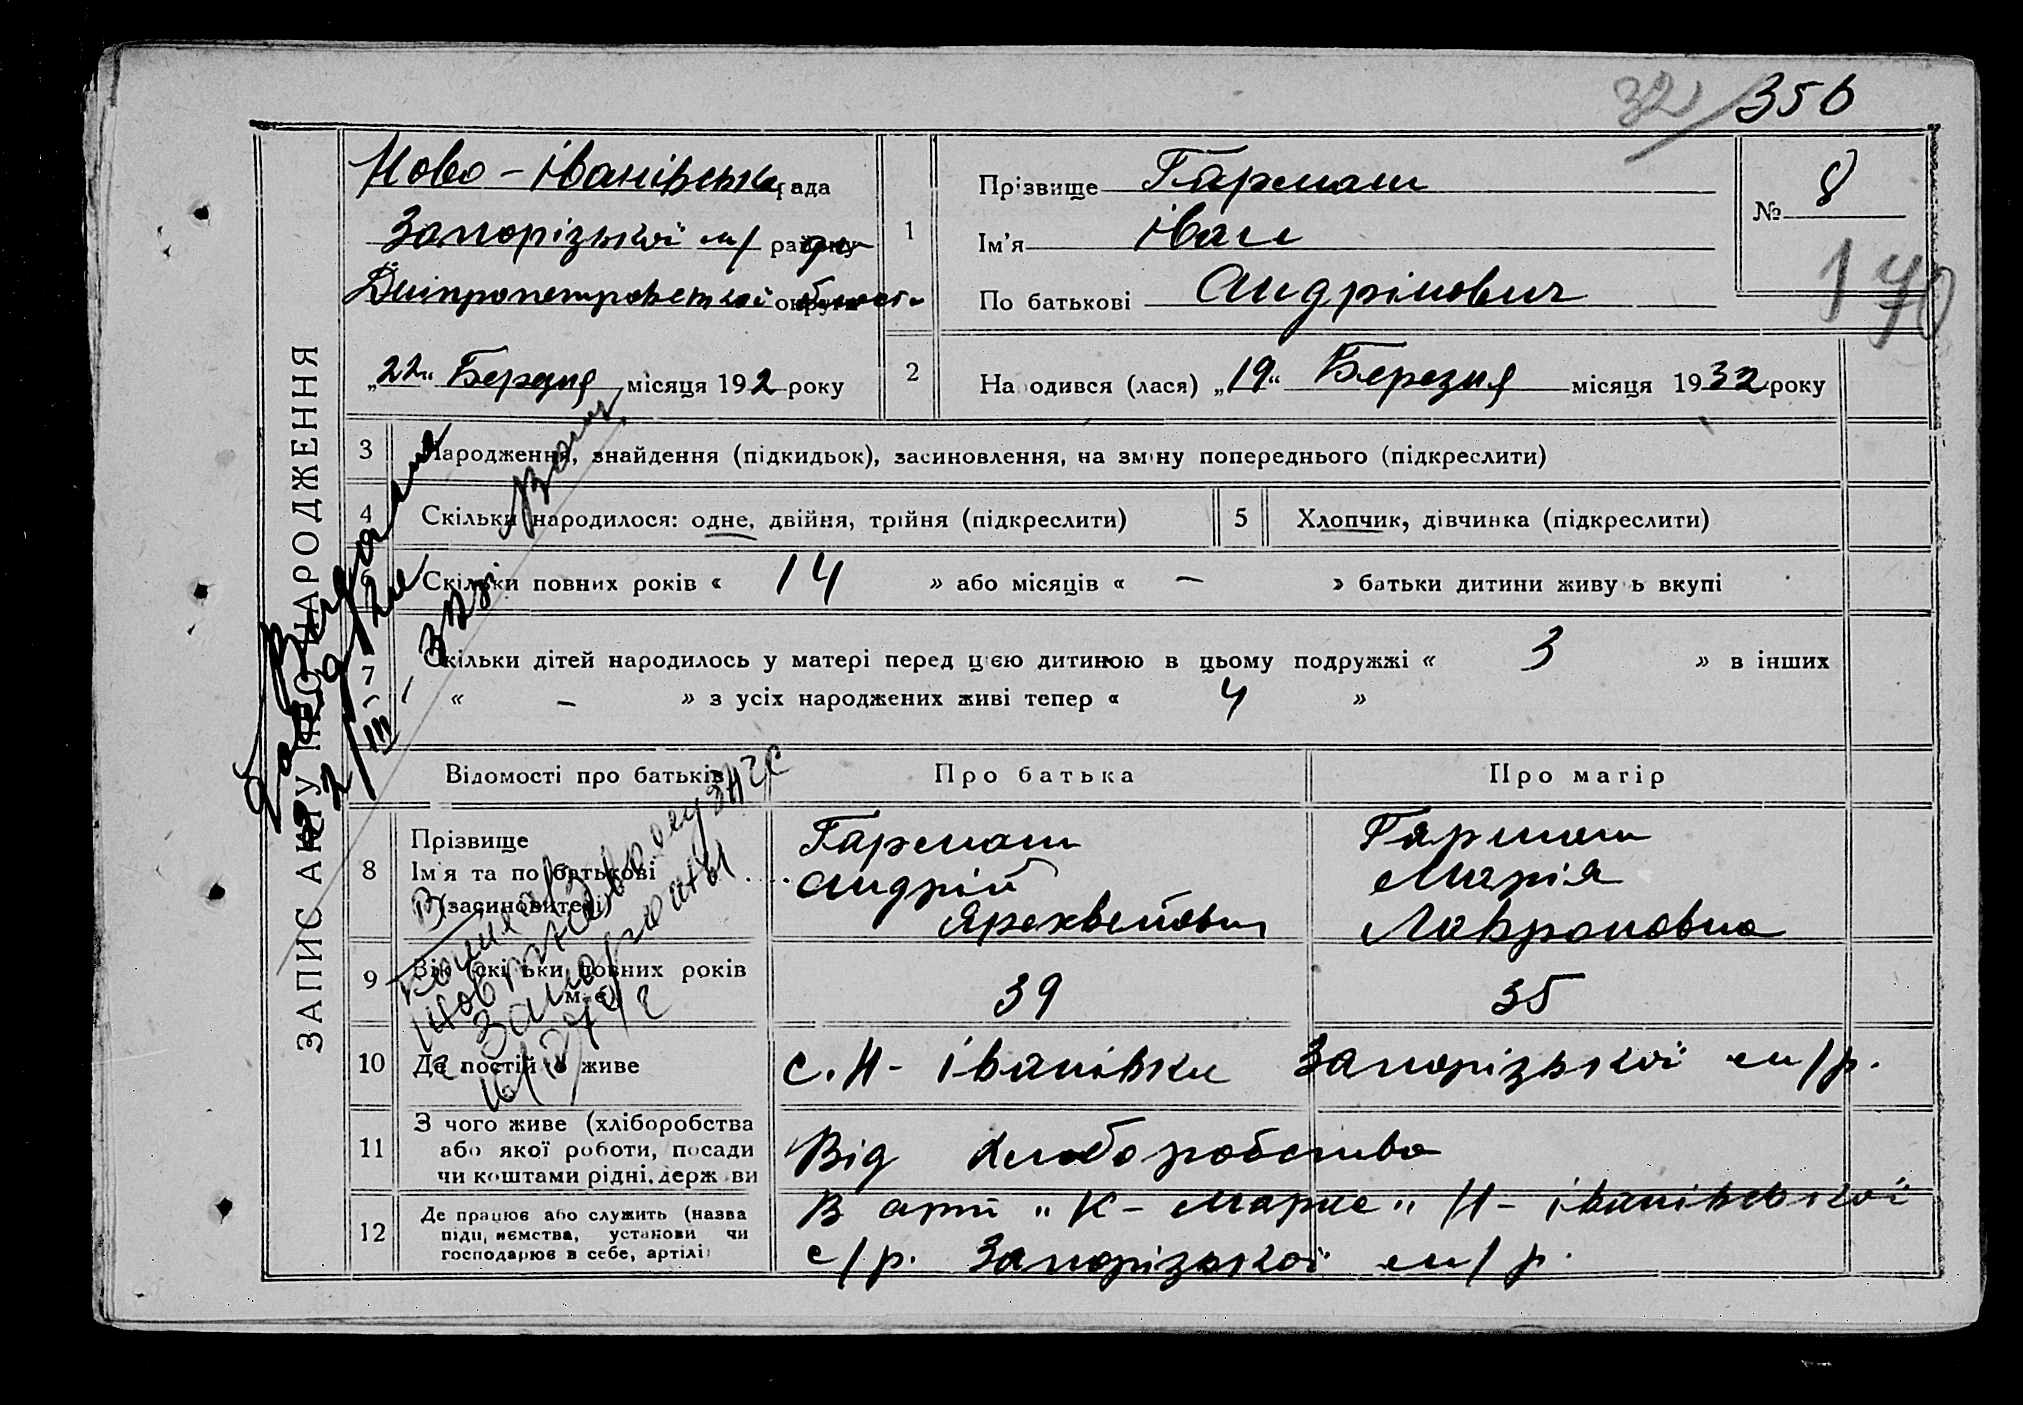 32/356
Ново-Іванівська рада
Запорізької м/ району
Дніпропетровської округи області
„22“ Березня місяця 192 року
1
Прізвище Гармаш
Ім'я Іван
По батькові Андрійович
№ 8
170
2
Народився (лася) „19“ Березня місяця 1932 року
ЗАПИС АКТУ ПРО НАРОДЖЕННЯ
3 Народження, знайдення (підкидьок), засиновлення, на зміну попереднього (підкреслити)
4 Скільки народилося: одне, двійня, трійня (підкреслити)
5 Хлопчик, дівчинка (підкреслити)
6 Скільки повних років « 14 » або місяців « – » батьки дитини живуть вкупі
7 Скільки дітей народилось у матері перед цією дитиною в цьому подружжі « 3 » в інших
« – » з усіх народжених живі тепер « 4 »
Відомості про батьків
Про батька
Про матір
8 Прізвище
Ім'я та по батькові
(засиновителі)
Гармаш
Андрій
Гармаш
Марія
9 Вік скільки повних років
має
39
35
10 Де постійно живе
с. Н-Іванівки Запорізької м/р.
11 З чого живе (хліборобства
або якої роботи, посади
чи коштами рідні, держави
Від хліборобства
12 Де працює або служить (назва
підприємства, установи чи
господарює в себе, артілі)
В арт „К-Маркс“ Н-Іванівської
с/р. Запорізької м/р.